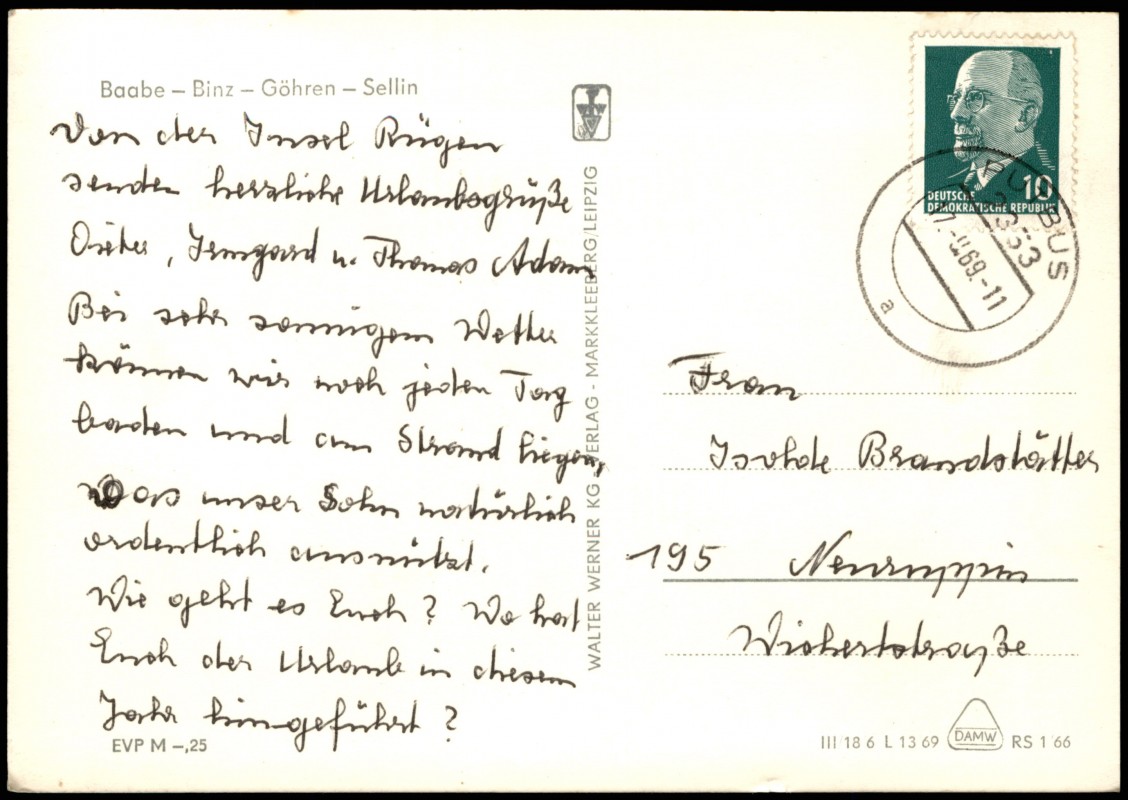 Baabe – Binz – Göhren – Sellin
Von der Insel Rügen
senden herzliche Urlaubsgrüße
Dieter, Irmgard u. Thomas Adam
Bei sehr sonnigem Wetter
können wir noch jeden Tag
baden und am Strand liegen,
Das unser Sohn natürlich
ordentlich ausnützt.
Wie geht es Euch? Wo hat
Euch der Urlaub in diesem
Jahr hingeführt?
EVP M –,25
WALTER WERNER KG VERLAG - MARKKLEEBERG/LEIPZIG
DEUTSCHE
DEMOKRATISCHE REPUBLIK
10
PUTBUS
2353
69.-11
a
Frau
Isolde Brandstätter
195 Neuruppin
Wichertstraße
III 18 6 L 13 69 DAMW RS 1 66